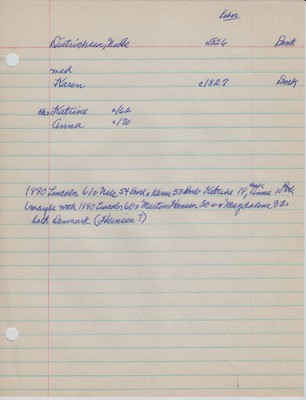 Labor
Dietrichsen, Nille c1826 Dmk
med
Karen c1827 Dmk
chs Katrine c/62
Anna c/70
1880 Lincoln 61s Nille 54 Dmk Karen 53 Dmk Katrine 18, Anna 10
(maybe with 1880 Lincoln 60s Martin Hansen 30 Magdalene 33
both Denmark (Hansen?)